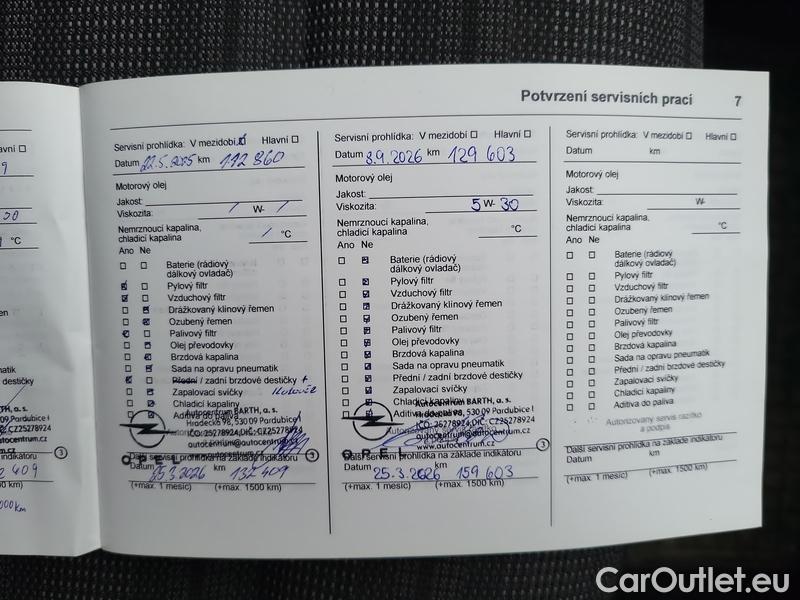 Potvrzení servisních prací 7
Servisní prohlídka: V mezidobí Hlavní
Datum 22.5.2025 km 112 860
Motorový olej
Jakost:
Viskozita: / W- /
Nemrznoucí kapalina,
chladicí kapalina / °C
Ano Ne
Baterie (rádiový
dálkový ovladač)
Pylový filtr
Vzduchový filtr
Drážkovaný klínový řemen
Ozubený řemen
Palivový filtr
Olej převodovky
Brzdová kapalina
Sada na opravu pneumatik
Přední / zadní brzdové destičky +
Zapalovací svíčky
Chladicí kapaliny
Aditiva do paliva
Autocentrum BARTH, a. s.
Hradecká 98, 530 09 Pardubice I
IČO: 25278924, DIČ: CZ25278924
autocentrum.cz
OPEL
Další servisní prohlídka na základě indikátoru
Datum km
25.3.2026 132 409
(+max. 1 měsíc) (+max. 1500 km)
Servisní prohlídka: V mezidobí Hlavní
Datum 8.9.2026 km 129 603
Motorový olej
Jakost:
Viskozita: 5 W- 30
Nemrznoucí kapalina,
chladicí kapalina °C
Ano Ne
Baterie (rádiový
dálkový ovladač)
Pylový filtr
Vzduchový filtr
Drážkovaný klínový řemen
Ozubený řemen
Palivový filtr
Olej převodovky
Brzdová kapalina
Sada na opravu pneumatik
Přední / zadní brzdové destičky
Zapalovací svíčky
Chladicí kapaliny
Aditiva do paliva
Autocentrum BARTH, a. s.
Hradecká 98, 530 09 Pardubice I
IČO: 25278924, DIČ: CZ25278924
autocentrum@autocentrum.cz
www.autocentrum.cz
OPEL
Další servisní prohlídka na základě indikátoru
Datum km
25.3.2026 159 603
(+max. 1 měsíc) (+max. 1500 km)
Servisní prohlídka: V mezidobí Hlavní
Datum km
Motorový olej
Jakost:
Viskozita: W-
Nemrznoucí kapalina,
chladicí kapalina °C
Ano Ne
Baterie (rádiový
dálkový ovladač)
Pylový filtr
Vzduchový filtr
Drážkovaný klínový řemen
Ozubený řemen
Palivový filtr
Olej převodovky
Brzdová kapalina
Sada na opravu pneumatik
Přední / zadní brzdové destičky
Zapalovací svíčky
Chladicí kapaliny
Aditiva do paliva
Autorizovaný servis razítko
a podpis
Další servisní prohlídka na základě indikátoru
Datum km
(+max. 1 měsíc) (+max. 1500 km)
CarOutlet.eu